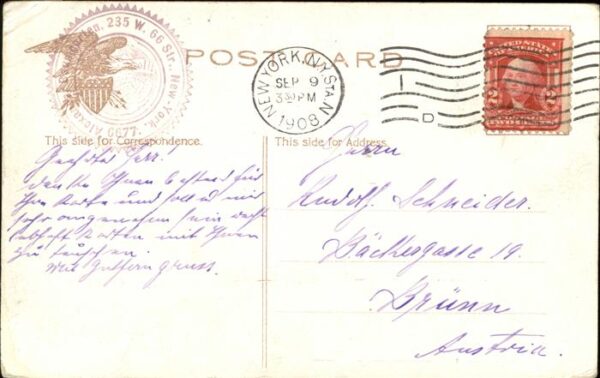 235 W. 66 Str. New York
6677
POST CARD
NEW YORK, N.Y. STA. N
SEP 9
3 30 PM
1908
D
2 2
This side for Correspondence.
This side for Address.
Geehrter Herr!
danke Ihnen bestens für
Ihre Karte und soll es mir
sehr angenehm sein recht
lebhaft Karten mit Ihnen
zu tauschen.
Mit Gruss.
Herrn
Rudolf Schneider.
Bäckergasse 19.
Brünn
Austria.